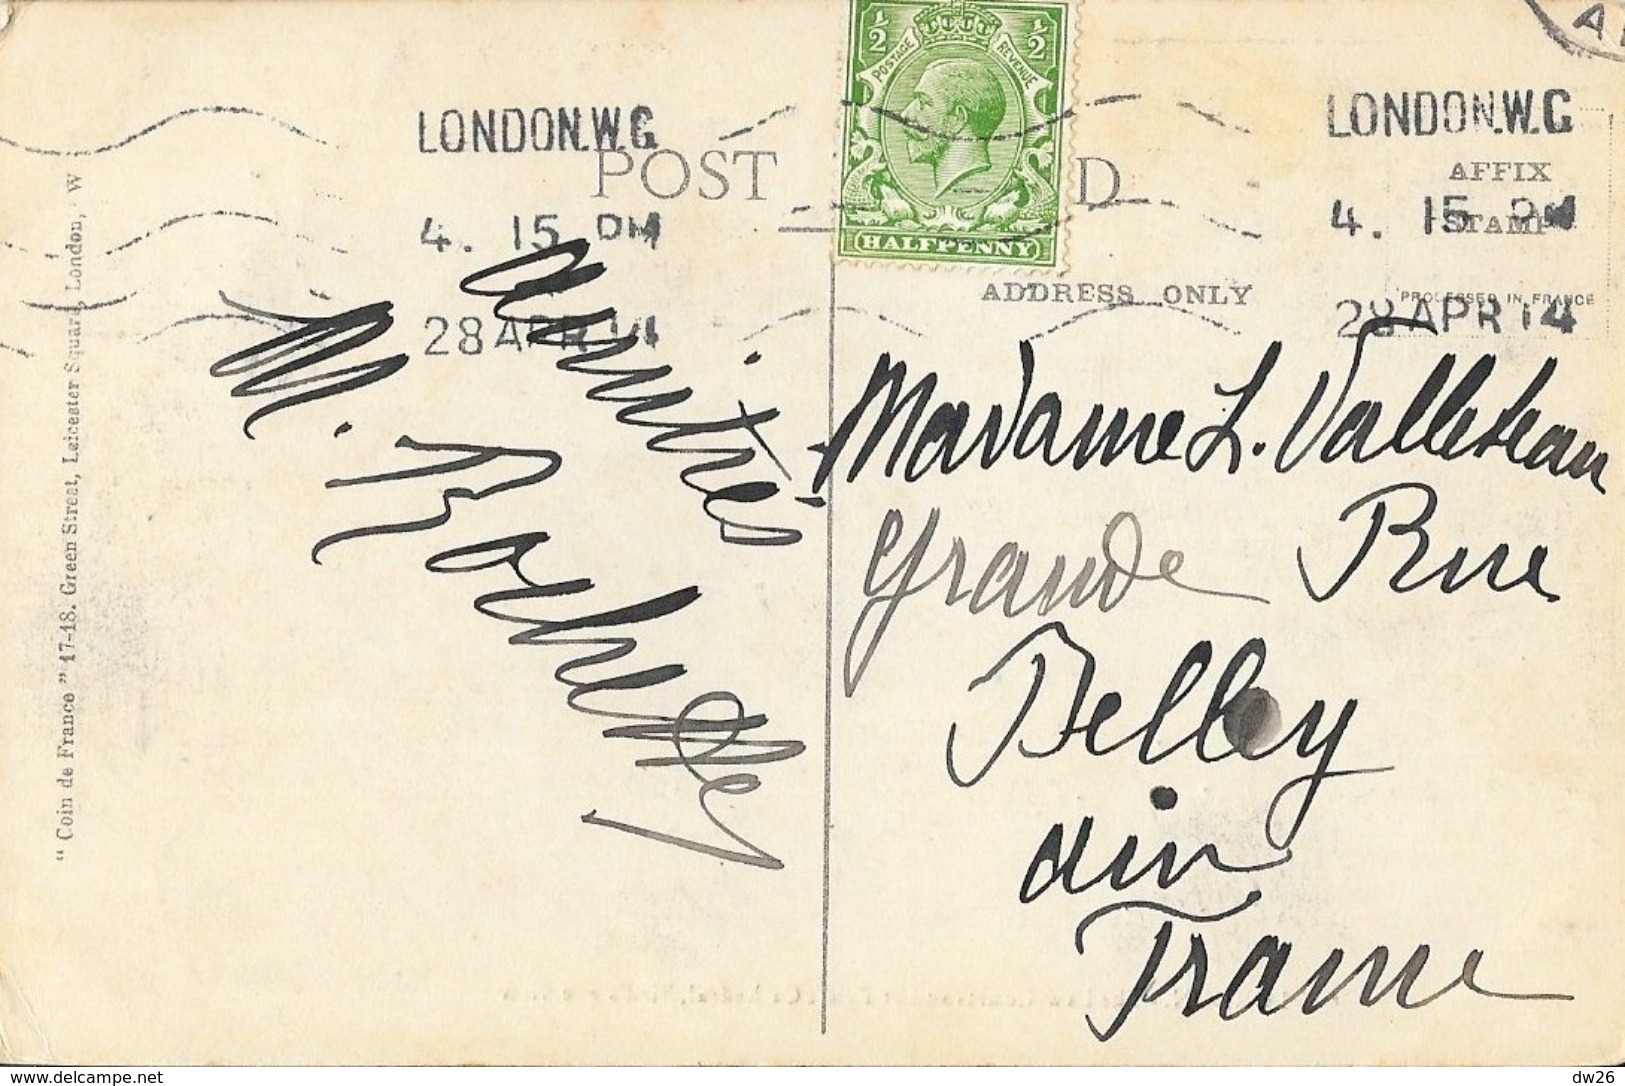 LONDON.W.C.
4. 15 PM
28 APR 14
POST
D
½ ½
POSTAGE REVENUE
HALFPENNY
LONDON.W.C.
4. 15 PM
28 APR 14
AFFIX
STAMP
PROCESSED IN FRANCE
ADDRESS ONLY
"Coin de France" 17-18. Green Street, Leicester Square, London, W
amitiés
M. Rochette
Madame L. Valleteau
Grande Rue
Belley
Ain
France
www.delcampe.net
dw26